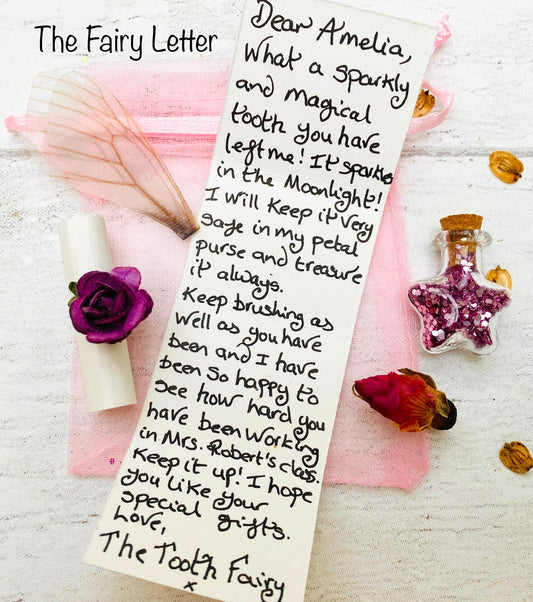 The Fairy Letter
Dear Amelia,
What a sparkly
and magical
tooth you have
left me! It sparkles
in the Moonlight!
I will keep it very
safe in my petal
purse and treasure
it always.
Keep brushing as
well as you have
been and I have
been so happy to
see how hard you
have been working
in Mrs. Robert's class.
Keep it up! I hope
you like your
special gifts.
Love,
The Tooth Fairy
x